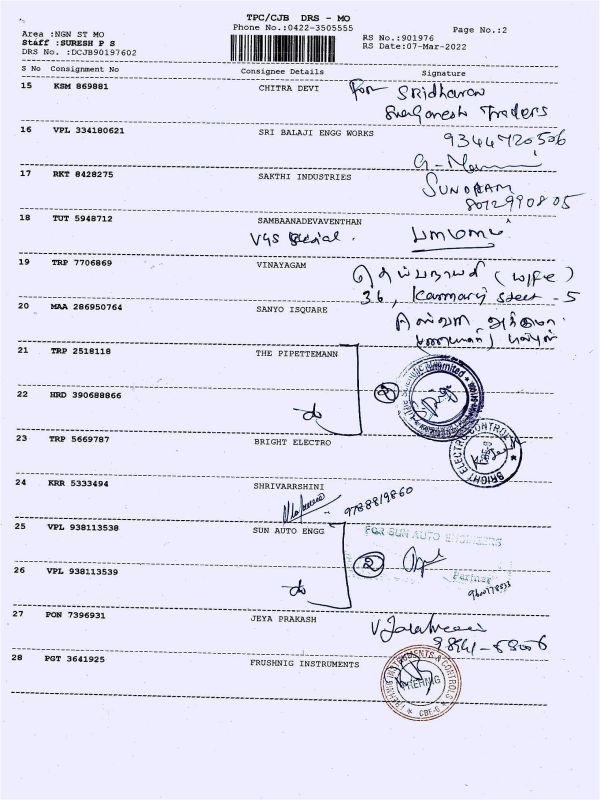 TPC/CJB DRS - MO
Phone No.:0422-3505555
Page No.:2
Area :NGN ST MO
Staff :SURESH P S
DRS No. :DCJB90197602
RS No.:901976
RS Date:07-Mar-2022
S No Consignment No Consignee Details Signature
15 KSM 869881 CHITRA DEVI For Sridharan
Traders
16 VPL 334180621 SRI BALAJI ENGG WORKS 9344720506
17 RKT 8428275 SAKTHI INDUSTRIES SUNDRAM
8012990805
18 TUT 5948712 SAMBAANADEVAVENTHAN
19 TRP 7706869 VINAYAGAM (wife)
36, Street - 5
20 MAA 286950764 SANYO ISQUARE
21 TRP 2518118 THE PIPETTEMANN
2
22 HRD 390688866 do
23 TRP 5669787 BRIGHT ELECTRO
BRIGHT ELECTRO CONTROLS
24 KRR 5333494 SHRIVARRSHINI
9788819860
25 VPL 938113538 SUN AUTO ENGG
FOR SUN AUTO ENGINEERS
2
26 VPL 938113539 do
Partner
27 PON 7396931 JEYA PRAKASH
28 PGT 3641925 FRUSHNIG INSTRUMENTS
INSTRUMENTS & CONTROLS
CBE-6